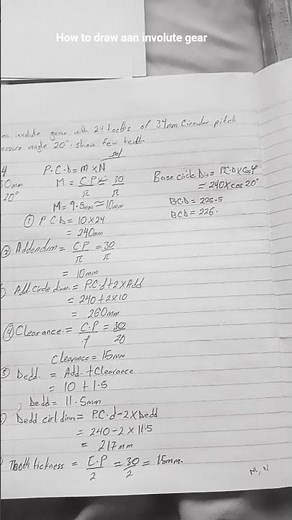 How to draw aan involute gear
involute gear with 24 teeths of 34mm Circular pitch
pressure angle 20°. show few teeth.
Sol
P.C.D = m × N
M = C.P/π = 30/π
M = 9.5mm ≈ 10mm
20°
Base circle D = P.C.D × Cosφ
= 240 × cos 20°
BCD = 225.5
BCD = 226.
① P C D = 10 × 24
= 240mm
② Addendum = C.P/π = 30/π
= 10mm
Add Circle diam = P.C.d + 2 × Add
= 240 + 2 × 10
= 260mm
④ Clearance = C.P/ = 30/20
Clearance = 1.5mm
⑤ Dedd. = Add. + Clearance
= 10 + 1.5
Dedd = 11.5mm
Dedd circl dim = P.C.d - 2 × Dedd
= 240 - 2 × 11.5
= 217mm
Tooth tickness = C.P/2 = 30/2 = 15mm.
M, N